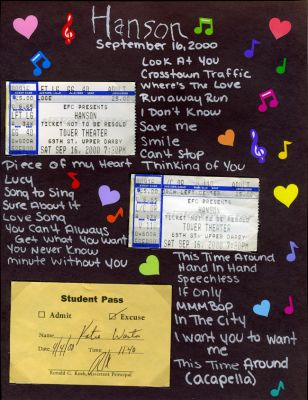 Hanson
September 16, 2000
Look At You
Crosstown Traffic
Where's The Love
Runaway Run
I Don't Know
Save me
Smile
Can't Stop
Thinking of You
EFC PRESENTS
HANSON
TICKET NOT TO BE RESOLD
TOWER THEATER
69TH ST. UPPER DARBY
SAT SEP 16, 2000 7:30 PM
Piece of my Heart
Lucy
Song to Sing
Sure About It
Love Song
You Can't Always
Get what you want
You Never Know
minute without you
EFC PRESENTS
HANSON
TICKET NOT TO BE RESOLD
TOWER THEATER
69TH ST. UPPER DARBY
SAT SEP 16, 2000 7:30 PM
This Time Around
Hand In Hand
Speechless
If Only
MMMBop
In The City
I want you to want
me
This Time Around
(acapella)
Student Pass
Admit
Excuse
Name
Katie
Date
Time
11:40
Assistant Principal